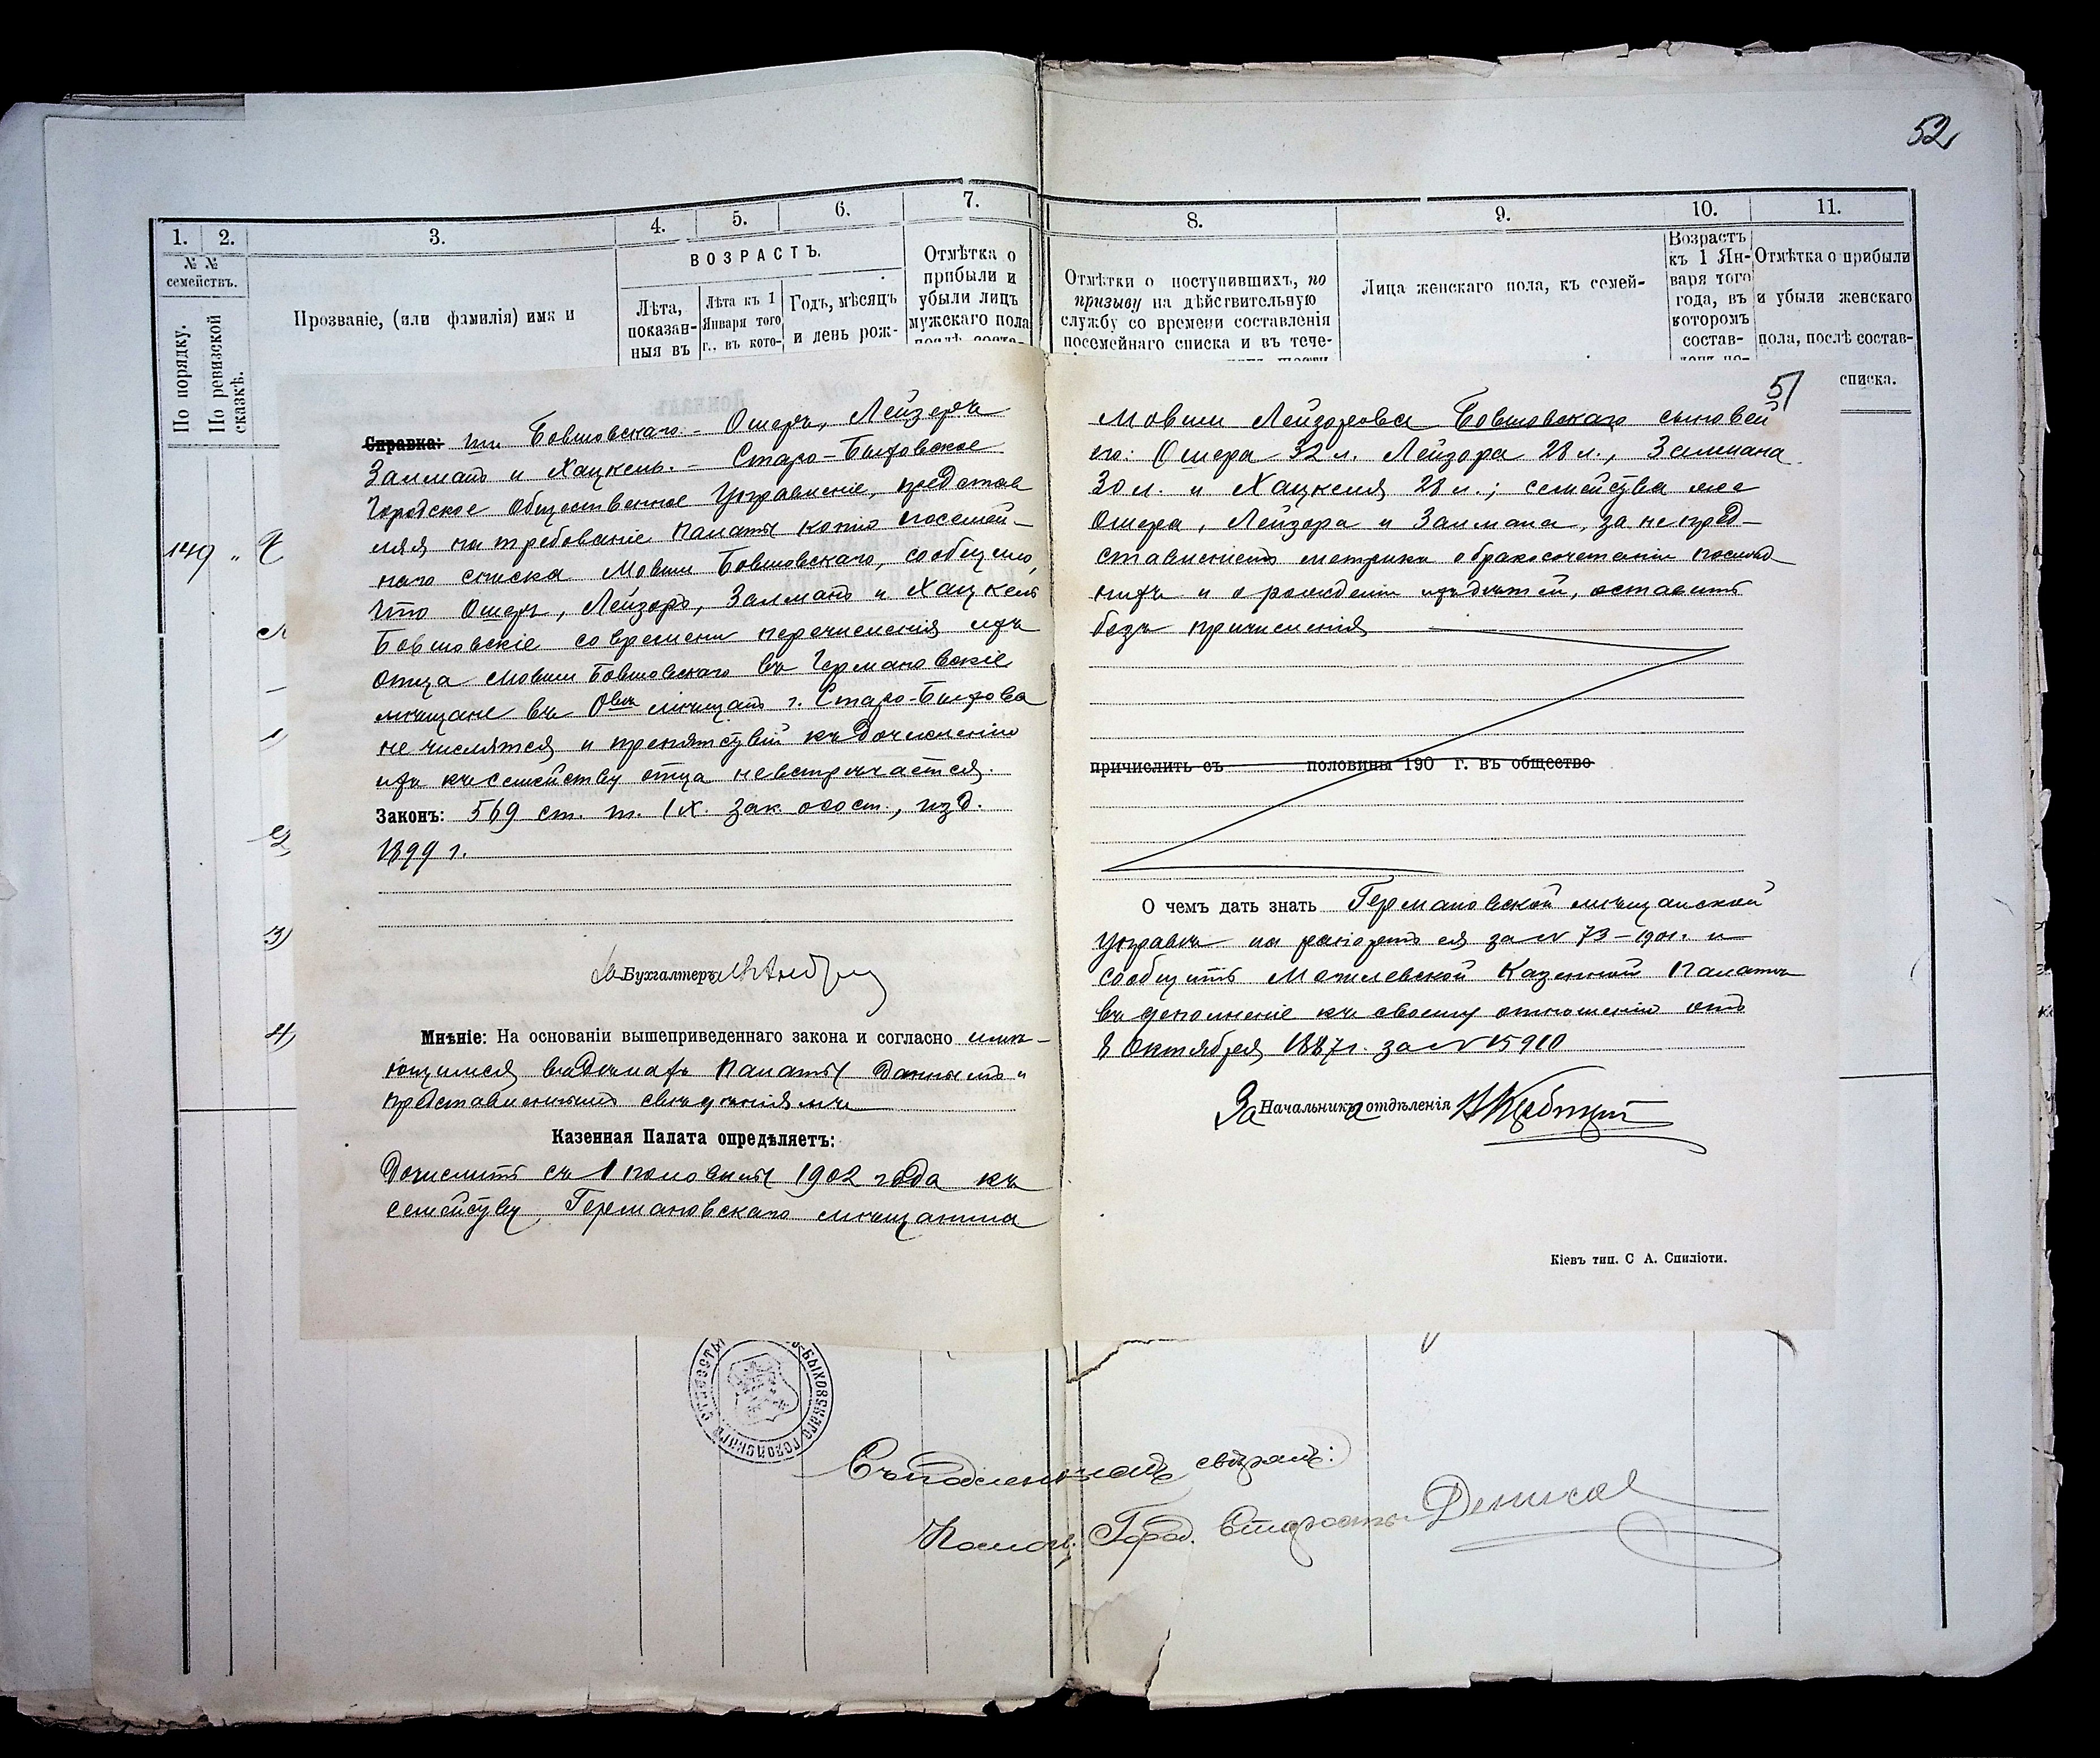 52
1.
2.
3.
4.
5.
6.
7.
8.
9.
10.
11.
№ №
семействъ.
По порядку.
По ревизской
сказкѣ.
Прозваніе, (или фамилія) имя и
ВОЗРАСТЪ.
Лѣта,
показан-
ныя въ
Лѣта къ 1
Января того
г., въ кото-
Годъ, мѣсяцъ
и день рож-
Отмѣтка о
прибыли и
убыли лицъ
мужскаго пола
послѣ соста-
Отмѣтки о поступившихъ, по
призыву на дѣйствительную
службу со времени составленія
посемейнаго списка и въ тече-
Лица женскаго пола, къ семей-
Возрастъ
къ 1 Ян-
варя того
года, въ
которомъ
состав-
Отмѣтка о прибыли
и убыли женскаго
пола, послѣ состав-
списка.
149 "
1)
2)
3)
4)
Справка: Бовшовскаго - Ошеръ, Лейзеръ
Залманъ и Хацкель. - Старо-Быховское
Городское Общественное Управленіе, представ
ляя на требованіе Палаты копію посемей-
наго списка Мовши Бовшовскаго, сообщило,
что Ошеръ, Лейзоръ, Залманъ и Хацкель
Бовшовскіе со времени перечисленія ихъ
отца Мовши Бовшовскаго въ Германовскіе
мѣщане въ Овѣ мѣщанъ г. Старо-Быхова
не числятся и препятствій къ дочисленію
ихъ къ семейству отца не встрѣчается.
Законъ: 569 ст. т. IX. Зак. о сост., изд.
1899 г.
За Бухгалтеръ
Мнѣніе: На основаніи вышеприведеннаго закона и согласно имѣ-
ющимся въ дѣлахъ Палаты даннымъ и
представленнымъ свѣдѣніямъ
Казенная Палата опредѣляетъ:
Дочислить съ 1 половины 1902 года къ
семейству Германовскаго мѣщанина
51
Мовши Лейзорова Бовшовскаго сыновей
его: Ошера 32 л. Лейзора 28 л., Залмана
30 л. и Хацкеля 28 л.; семейства же
Ошера, Лейзора и Залмана, за непред-
ставленіемъ метрики о бракосочетаніи послѣд
нихъ и о рожденіи ихъ дѣтей, оставить
безъ причисленія
причислить съ половины 190 г. въ общество
О чемъ дать знать Германовской мѣщанской
Управѣ на рапортъ ея за № 73 - 1901 г. и
сообщить Могилевской Казенной Палатѣ
въ дополненіе къ своему отношенію отъ
8 Октября 1887 г. за № 15910
За Начальника отдѣленія
Кіевъ тип. С А. Спиліоти.
БЫХОВСКАГО ГОРОДСКАГО СТАРОСТЫ
Съ подлиннымъ свѣрялъ:
Помощ. Город. Старосты